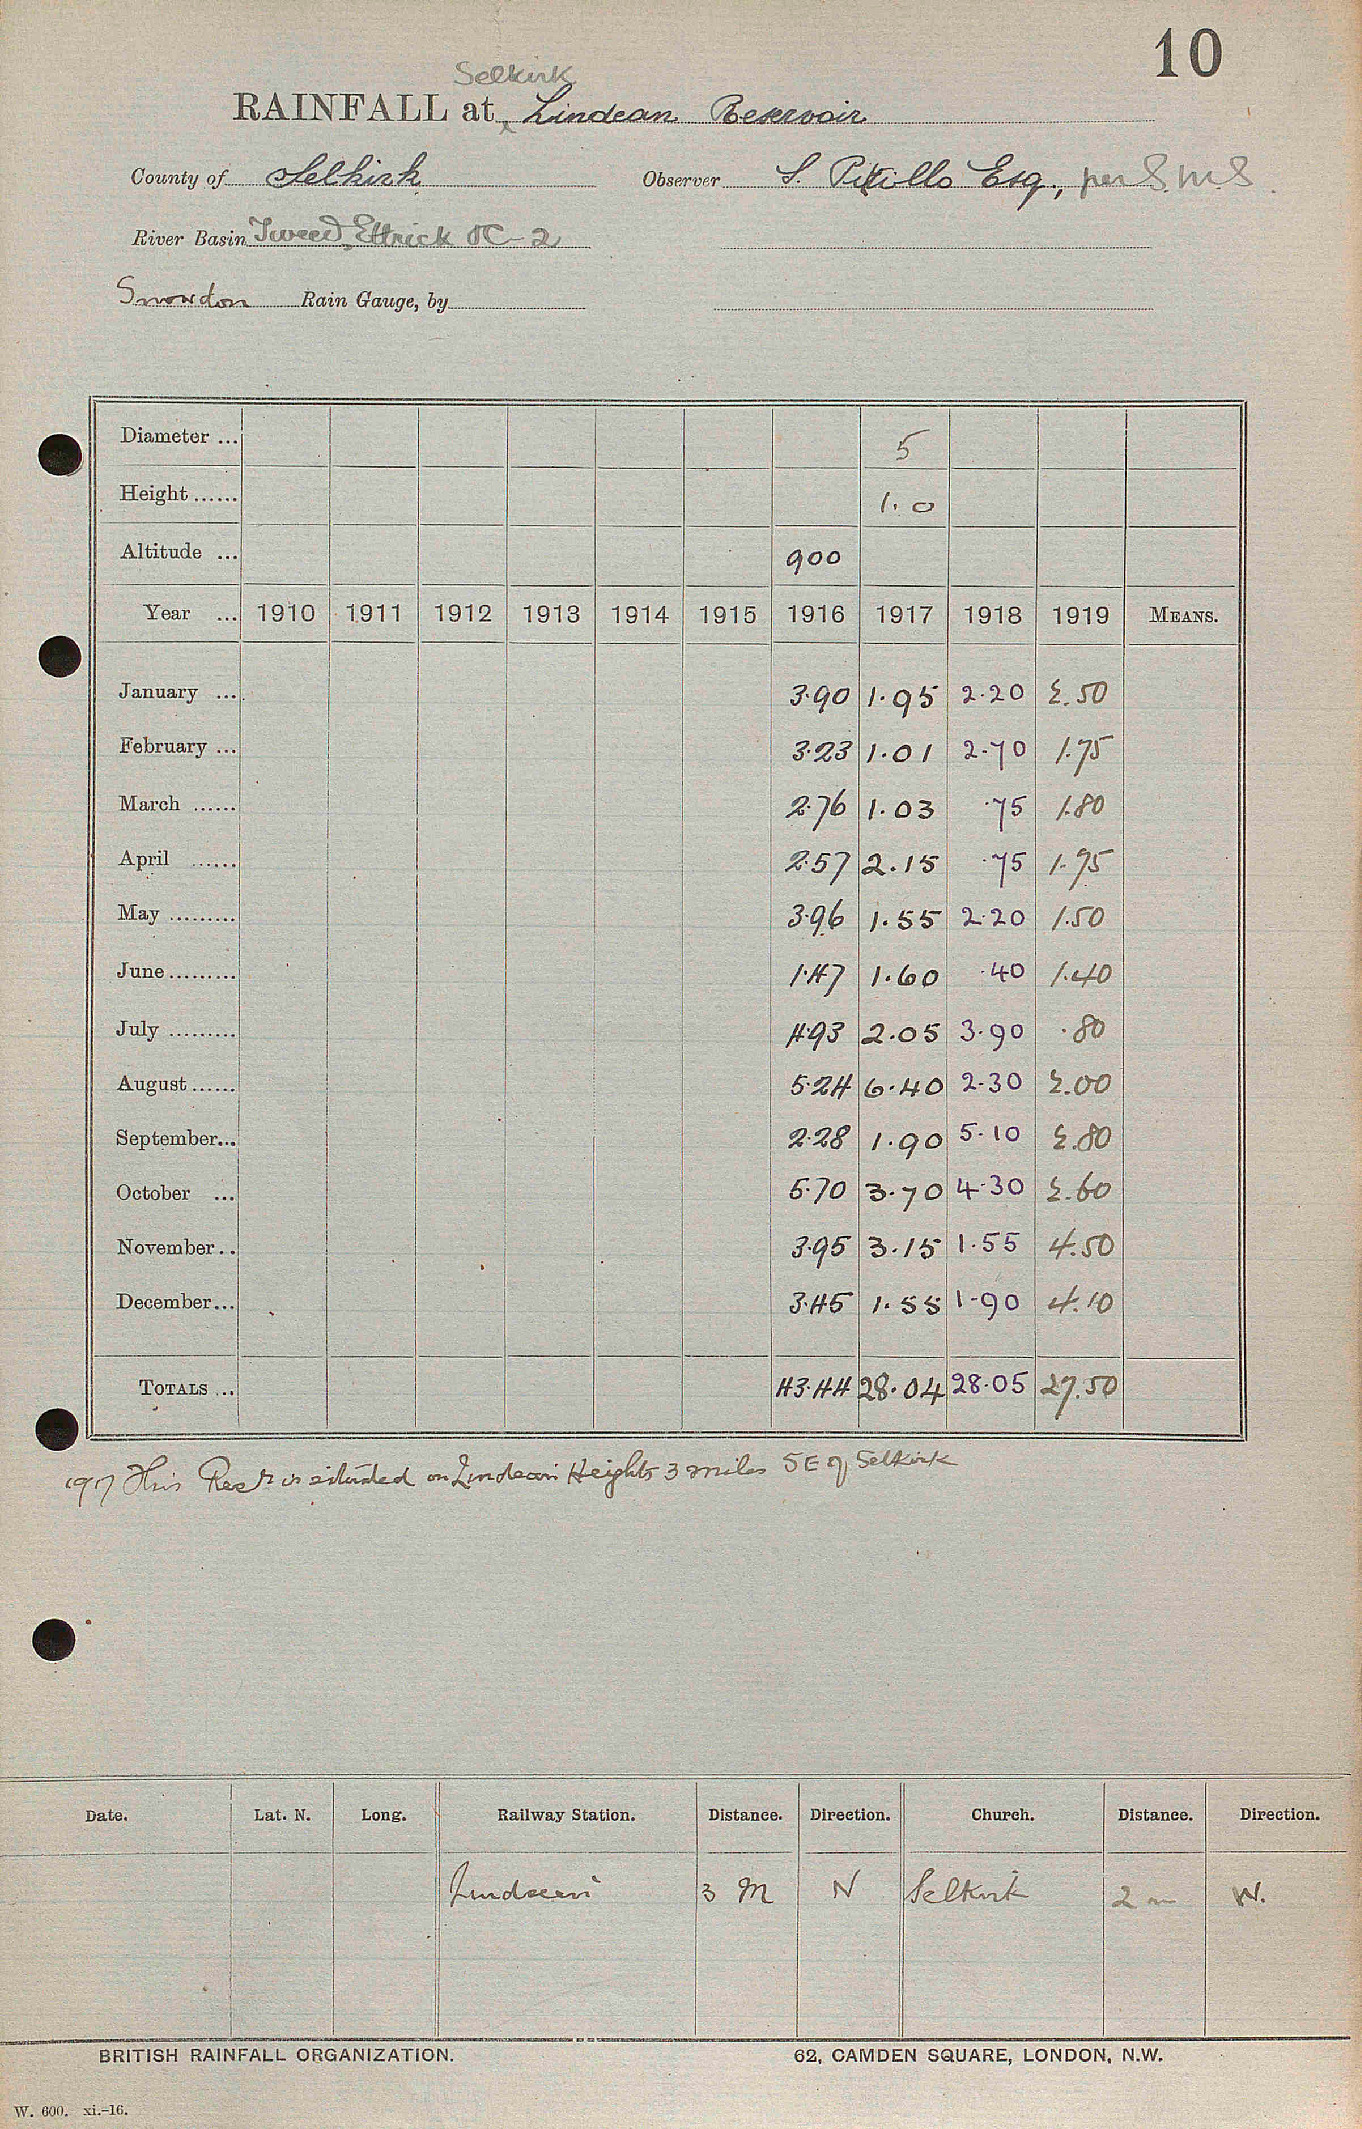 10
Selkirk
RAINFALL at Lindean Reservoir
County of Selkirk Observer S. Pitillo Esq., per S.M.S.
River Basin Tweed, Ettrick IC-2
Snowdon Rain Gauge, by
Diameter ... 5
Height ...... 1.0
Altitude ... 900
Year ... 1910 1911 1912 1913 1914 1915 1916 1917 1918 1919 MEANS.
January ... 3.90 1.95 2.20 2.50
February ... 3.23 1.01 2.70 1.75
March ...... 2.76 1.03 .75 1.80
April ...... 2.57 2.15 .75 1.75
May ......... 3.96 1.55 2.20 1.50
June ......... 1.47 1.60 .40 1.40
July ......... 4.93 2.05 3.90 .80
August ...... 5.24 6.40 2.30 2.00
September... 2.28 1.90 5.10 2.80
October ... 5.70 3.70 4.30 2.60
November.. 3.95 3.15 1.55 4.50
December... 3.45 1.55 1.90 4.10
TOTALS ... 43.44 28.04 28.05 27.50
1917 This Resr is situated on Lindean Heights 3 miles SE of Selkirk
Date. Lat. N. Long. Railway Station. Distance. Direction. Church. Distance. Direction.
Lindean 3 M N Selkirk 2 m W.
BRITISH RAINFALL ORGANIZATION. 62, CAMDEN SQUARE, LONDON, N.W.
W. 600. xi.-16.